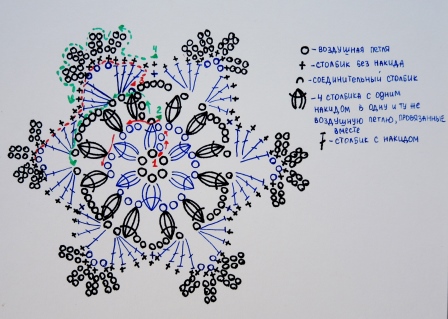 - воздушная петля
- столбик без накида
- соединительный столбик
- 4 столбика с одним
накидом в одну и ту же
воздушную петлю, провязанные
вместе
- столбик с накидом
1
2
3
4